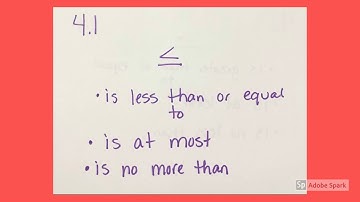 4.1
≤
• is less than or equal
to
• is at most
• is no more than
Sp Adobe Spark